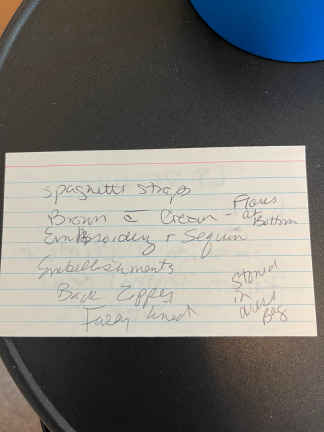 Spaghetti Straps
Brown & Cream - Flares at Bottom
Embroidery + Sequin
Embellishments
Back Zipper
Fully lined
Stored in dress bag